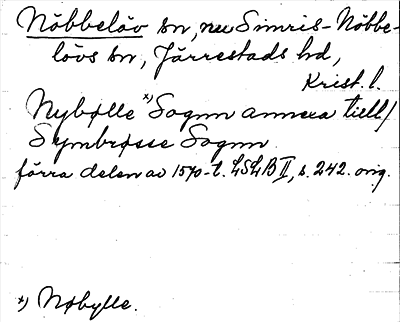 Nöbbelöv sn, nu Simris-Nöbbe-
lövs sn, Järrestads hd,
Krist. l.
Nybølle x) Sognn annexa tiell/
Symbrøsse Sognn.
förra delen av 1570-t. LSLB II, s. 242. orig.
x) Nøbylle.